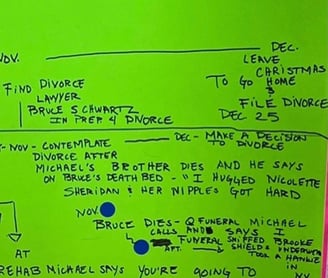 NOV. DEC.
LEAVE
CHRISTMAS
FIND DIVORCE TO GO HOME
LAWYER &
BRUCE SCHWARTZ FILE DIVORCE
IN PREP 4 DIVORCE DEC 25
- NOV - CONTEMPLATE DEC - MAKE A DECISION
DIVORCE AFTER TO DIVORCE
MICHAEL'S BROTHER DIES AND HE SAYS
ON BRUCE'S DEATH BED - "I HUGGED NICOLETTE
SHERIDAN & HER NIPPLES GOT HARD
NOV
BRUCE DIES - @ FUNERAL MICHAEL
CALLS AND SAYS I
FUNERAL SNIFFED BROOKE
AFT. SHIELDS UNDERWEAR
TOOK A HANKIE
AT IN
REHAB MICHAEL SAYS YOU'RE GOING TO